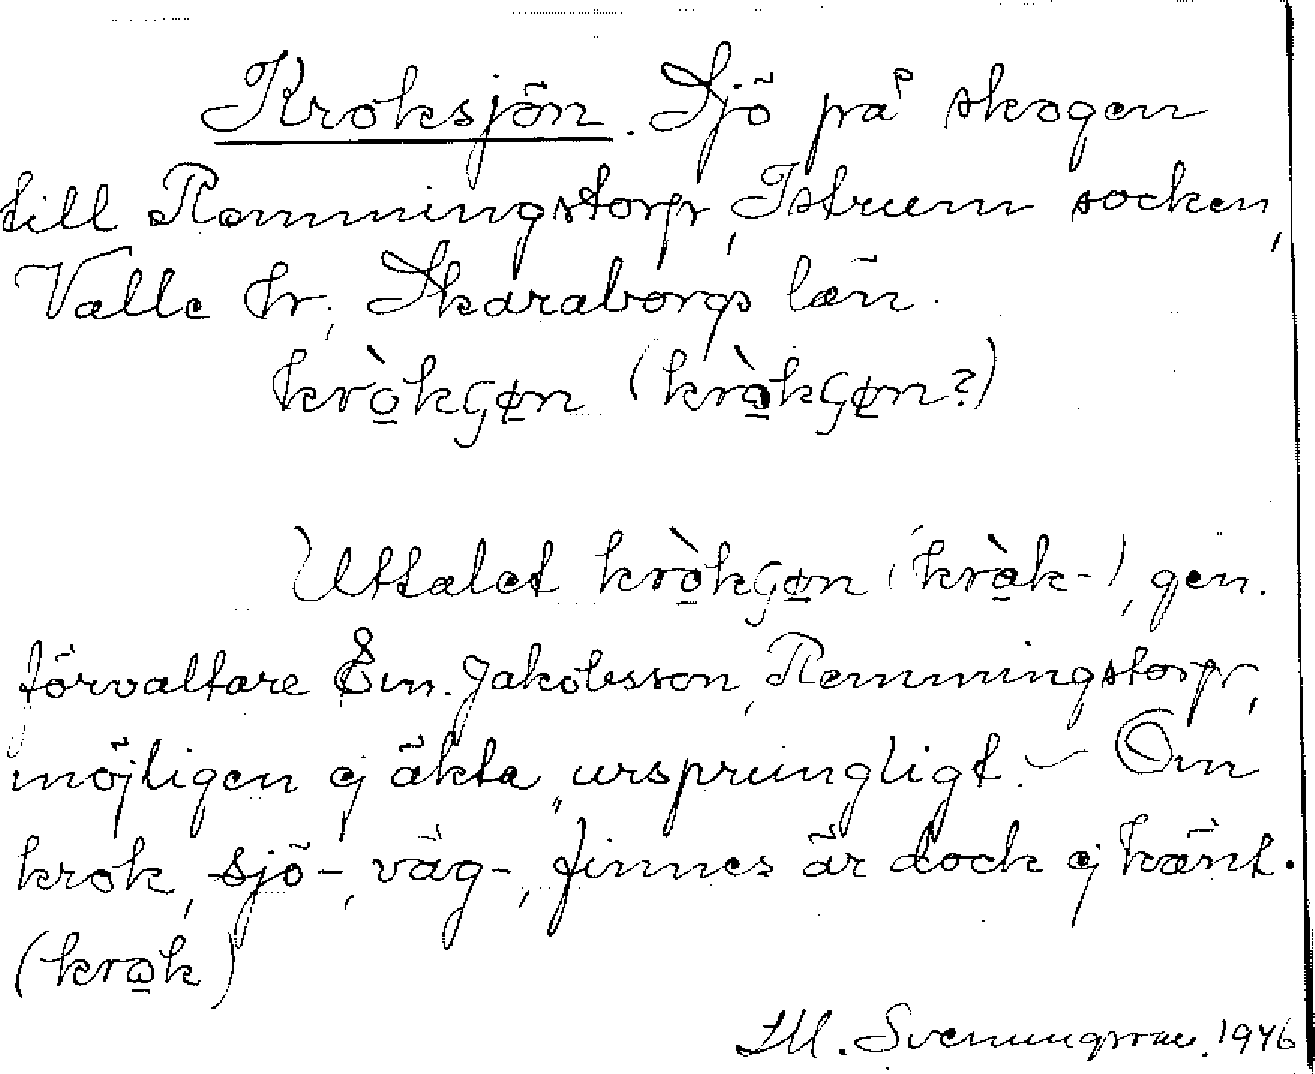 Kroksjön. Sjö på skogen
till Remmingstorp, Istrum socken,
Valle hr, Skaraborgs län.
kròkʃøn (kràkʃøn?)
Uttalet kròkʃøn (kràk-), gen.
förvaltare Em. Jakobsson, Remmingstorp,
möjligen ej äkta, ursprungligt. – Om
krok, sjö-, väg-, finnes är dock ej känt.
(krøk)
M. Svenungsson. 1946